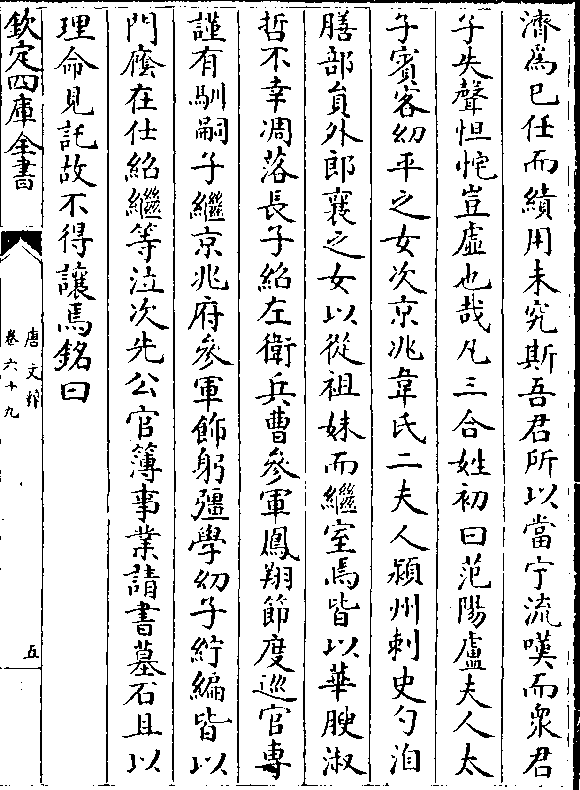 濟爲已任而績用未究斯吾君所以當宁流嘆而衆君
子失聲怛惋豈虛也哉凡三合姓初曰范陽盧夫人太
子賓客幼平之女次京兆韋氏二夫人潁州刺史勺洎
膳部員外郎襄之女以從祖妹而繼室焉皆以華腴淑
哲不幸凋落長子紹左衛兵曹參軍鳳翔節度巡官專
謹有馴嗣子繼京兆府參軍飾躬彊學幼子紵編皆以
門廕在仕紹繼等泣次先公官簿事業請書墓石且以
理命見託故不得讓焉銘曰
欽定四庫全書
唐文粹
卷六十九
五